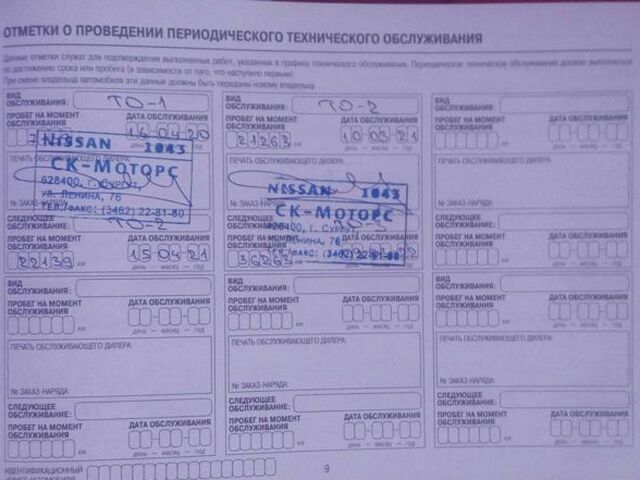 ОТМЕТКИ О ПРОВЕДЕНИИ ПЕРИОДИЧЕСКОГО ТЕХНИЧЕСКОГО ОБСЛУЖИВАНИЯ
Данные отметки служат для подтверждения выполненных работ, указанных в графике технического обслуживания. Периодическое техническое обслуживание должно выполняться
по достижению срока или пробега (в зависимости от того, что наступило первым).
При смене владельца автомобиля эти данные должны быть переданы новому владельцу.
ВИД ОБСЛУЖИВАНИЯ: ТО-1
ПРОБЕГ НА МОМЕНТ ОБСЛУЖИВАНИЯ
ДАТА ОБСЛУЖИВАНИЯ
160420
ПЕЧАТЬ ОБСЛУЖИВАЮЩЕГО ДИЛЕРА:
NISSAN 1843
СК-МОТОРС
628400, г. Сургут,
ул. Ленина, 76
ТЕЛ./ФАКС: (3462) 22-81-80
№ ЗАКАЗ-
СЛЕДУЮЩЕЕ ОБСЛУЖИВАНИЕ: ТО-2
ПРОБЕГ НА МОМЕНТ ОБСЛУЖИВАНИЯ
ДАТА ОБСЛУЖИВАНИЯ
22139 км 150421
день — месяц — год
ВИД ОБСЛУЖИВАНИЯ: ТО-2
ПРОБЕГ НА МОМЕНТ ОБСЛУЖИВАНИЯ
ДАТА ОБСЛУЖИВАНИЯ
21263 км 100321
день — месяц — год
ПЕЧАТЬ ОБСЛУЖИВАЮЩЕГО ДИЛЕРА:
NISSAN 1843
СК-МОТОРС
628400, г. Сургут,
Ленина, 76
ФАКС: (3462) 22-81-80
№ ЗАКАЗ-НАРЯДА:
СЛЕДУЮЩЕЕ ОБСЛУЖИВАНИЕ:
ПРОБЕГ НА МОМЕНТ ОБСЛУЖИВАНИЯ
36263
день — месяц — год
ВИД ОБСЛУЖИВАНИЯ:
ПРОБЕГ НА МОМЕНТ ОБСЛУЖИВАНИЯ
ДАТА ОБСЛУЖИВАНИЯ
км день — месяц — год
ПЕЧАТЬ ОБСЛУЖИВАЮЩЕГО ДИЛЕРА:
№ ЗАКАЗ-НАРЯДА:
СЛЕДУЮЩЕЕ ОБСЛУЖИВАНИЕ:
ПРОБЕГ НА МОМЕНТ ОБСЛУЖИВАНИЯ
ДАТА ОБСЛУЖИВАНИЯ
км день — месяц — год
ВИД ОБСЛУЖИВАНИЯ:
ПРОБЕГ НА МОМЕНТ ОБСЛУЖИВАНИЯ
ДАТА ОБСЛУЖИВАНИЯ
км день — месяц — год
ПЕЧАТЬ ОБСЛУЖИВАЮЩЕГО ДИЛЕРА:
№ ЗАКАЗ-НАРЯДА:
СЛЕДУЮЩЕЕ ОБСЛУЖИВАНИЕ:
ПРОБЕГ НА МОМЕНТ ОБСЛУЖИВАНИЯ
ДАТА ОБСЛУЖИВАНИЯ
км день — месяц — год
ВИД ОБСЛУЖИВАНИЯ:
ПРОБЕГ НА МОМЕНТ ОБСЛУЖИВАНИЯ
ДАТА ОБСЛУЖИВАНИЯ
км день — месяц — год
ПЕЧАТЬ ОБСЛУЖИВАЮЩЕГО ДИЛЕРА:
№ ЗАКАЗ-НАРЯДА:
СЛЕДУЮЩЕЕ ОБСЛУЖИВАНИЕ:
ПРОБЕГ НА МОМЕНТ ОБСЛУЖИВАНИЯ
ДАТА ОБСЛУЖИВАНИЯ
км день — месяц — год
ВИД ОБСЛУЖИВАНИЯ:
ПРОБЕГ НА МОМЕНТ ОБСЛУЖИВАНИЯ
ДАТА ОБСЛУЖИВАНИЯ
км день — месяц — год
ПЕЧАТЬ ОБСЛУЖИВАЮЩЕГО ДИЛЕРА:
№ ЗАКАЗ-НАРЯДА:
СЛЕДУЮЩЕЕ ОБСЛУЖИВАНИЕ:
ПРОБЕГ НА МОМЕНТ ОБСЛУЖИВАНИЯ
ДАТА ОБСЛУЖИВАНИЯ
км день — месяц — год
ИДЕНТИФИКАЦИОННЫЙ
НОМЕР АВТОМОБИЛЯ
9